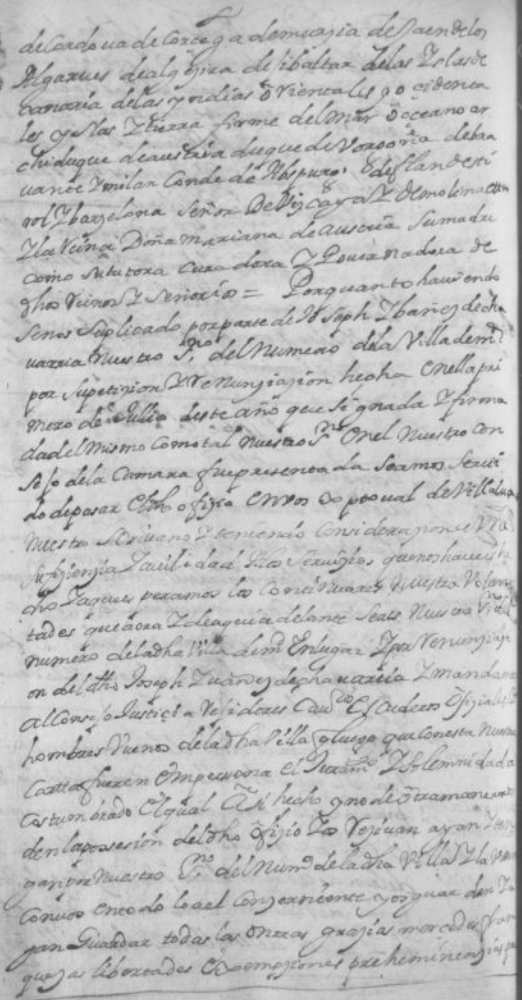 de Cordova de Corcega de murzia de Jaen de los
Algarves de algezira de jibaltar de las Yslas de
canaria de las yndias orientales y ocidenta
les yslas Ytierra firme del mar oceano ar
chiduque de austria duque de Vorgoña de bra
vante Ymilan Conde de Abspurg de flandes ti
rol Ybarzelona Señor de Vizcaya Y de molina
Yla Reina Doña Mariana de austria su madre
como su tutora curadora Y Governadora de
dhos Reinos Y Señorios = Por quanto haviendo
senos suplicado por parte de Joseph Ybañez de cha
varria nuestro ssno del Numero de la Villa de md
por su petizion Y renunziazion hecha en ella pri
mero de Jullio deste año que signada Y firma
da del mismo como tal nuestro sno en el nuestro con
sejo de la Camara fue presentada seamos servi
do de pasar el dho ofizio en vos
nuestro scrivano Y teniendo considerazion a Vra
sufizienzia Y avilidad Ylos servizios que nos haveis he
cho Y a que esperamos los continuareis nuestra Volun
tad es que aora Y de aqui adelante seais nuestro
numero de la dha Villa de md En lugar Y por Renunziazi
on del dho Joseph Yvañez de chavarria Y mandamos
al Consejo Justizia Rejidores Cavros Escuderos ofiziales
hombres buenos de la dha Villa que luego que con esta nuestra
Carta fueren en persona el Juramto Y solemnidad a
costumbrado El qual Asi hecho y no de otra manera
den la posesion del dho ofizio Y os rezivan ayan Y ten
gan por nuestro sno del Numo de la dha Villa Y la usen
con vos en todo lo a el conzerniente y os guarden Y a
gan Guardar todas las onrras grazias mercedes fran
quezas libertades Exempziones preheminenzias